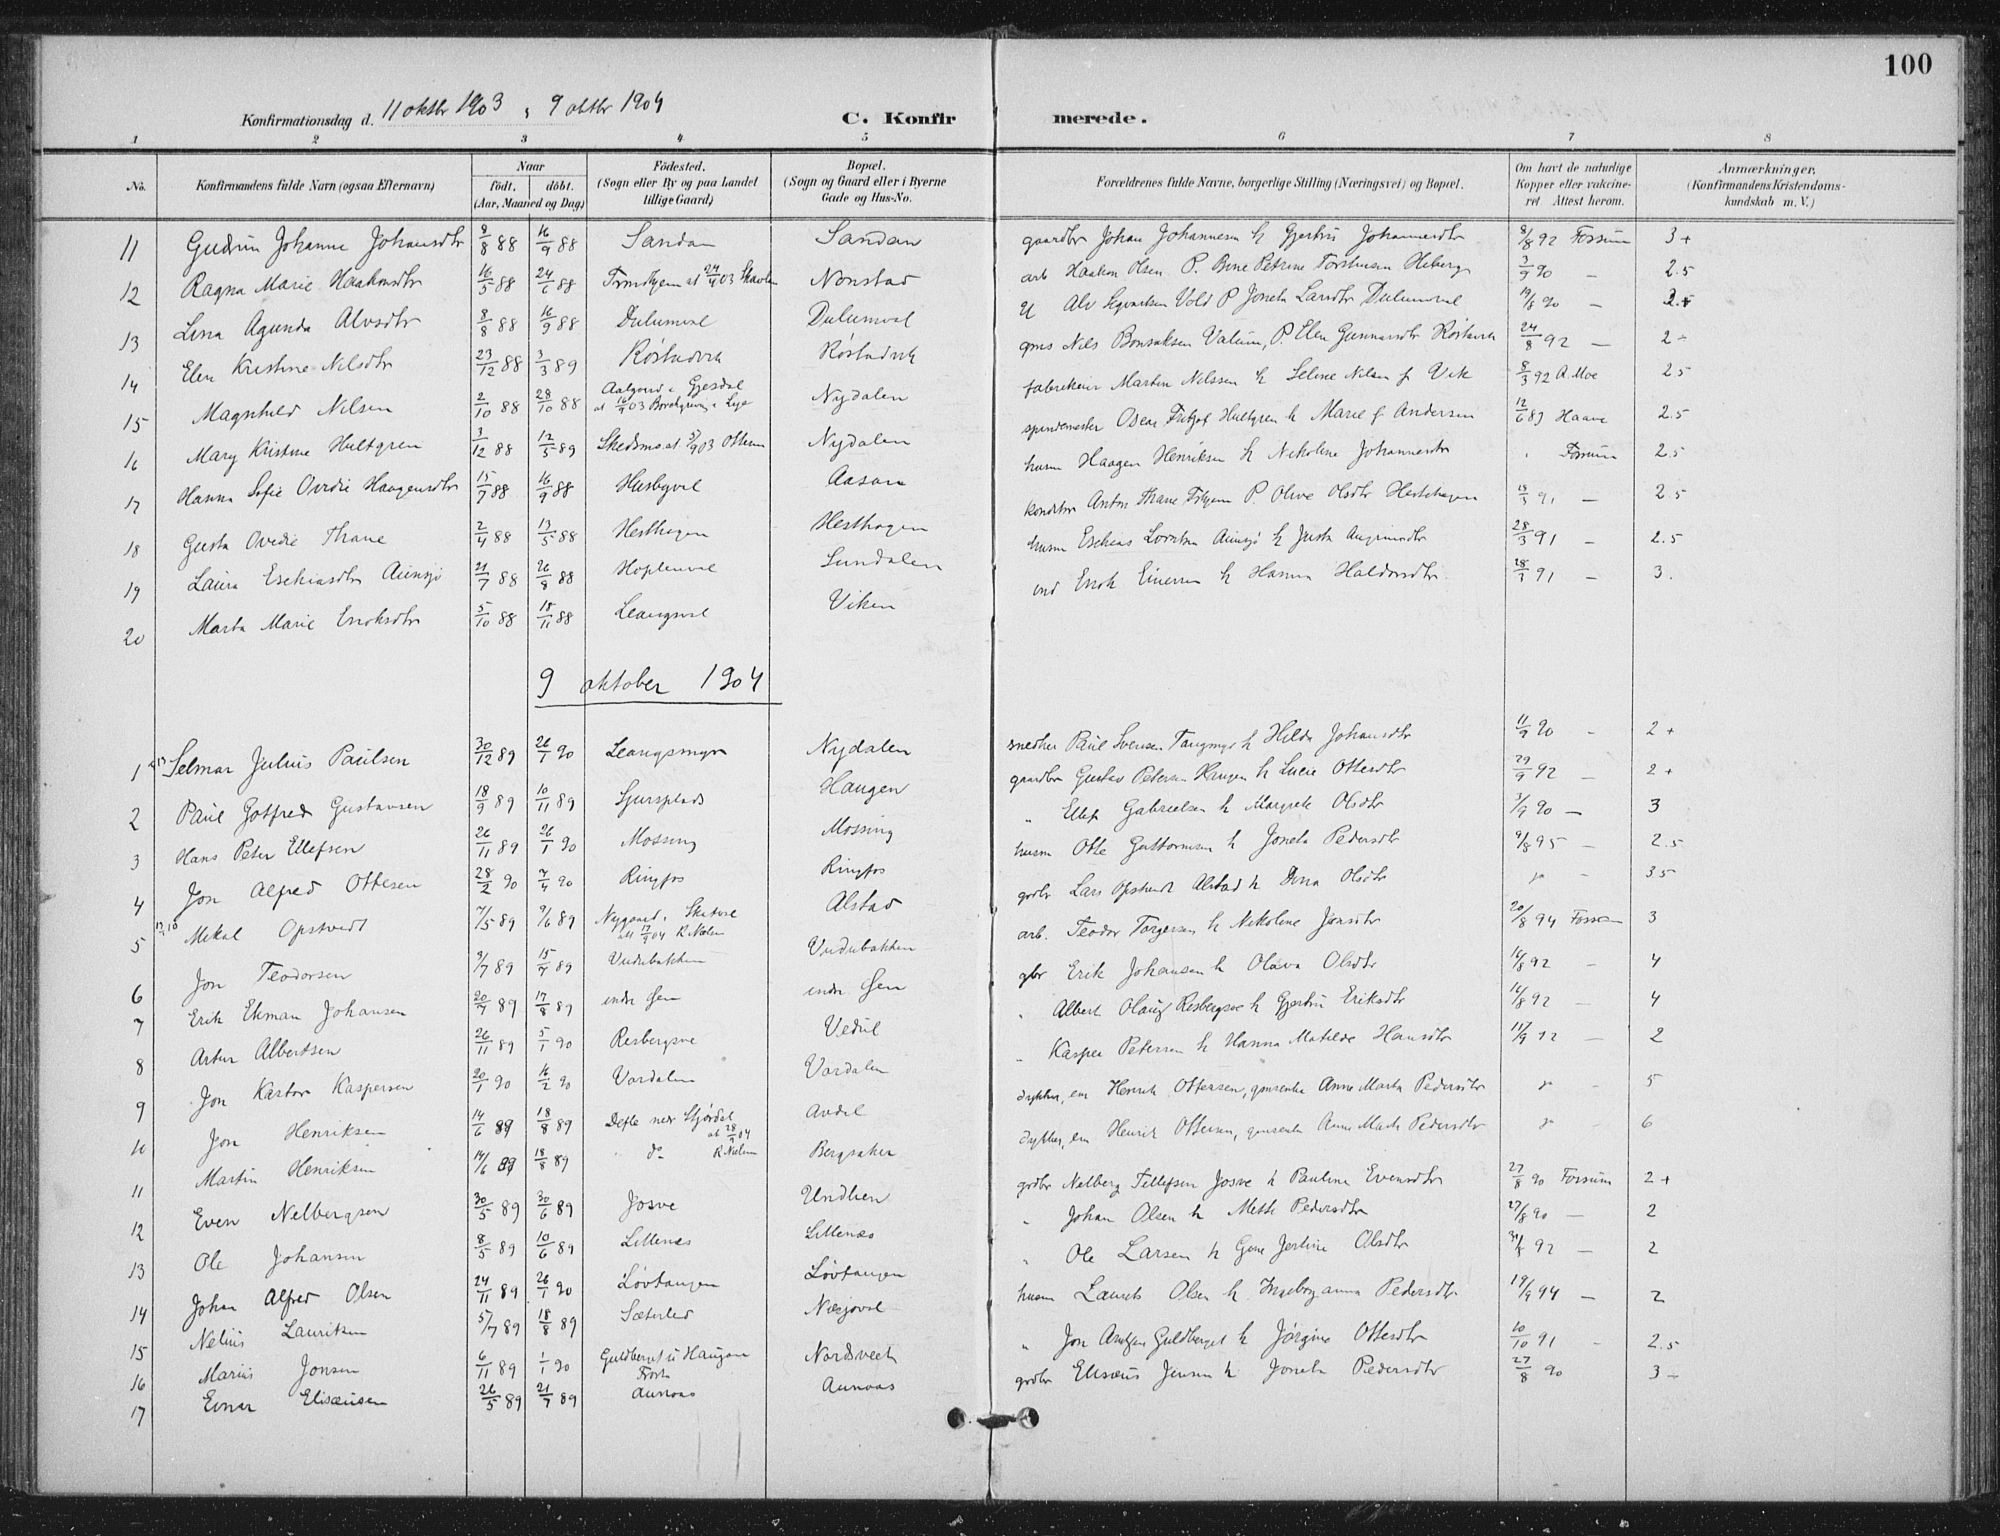 100
Konfirmationsdag d. 11 oktbr 1903, 9 oktbr 1904 C. Konfirmerede.
1 2 3 4 5 6 7 8
No. Konfirmandens fulde Navn (ogsaa Efternavn) Naar födt. döbt. (Aar, Maaned og Dag) Födested. (Sogn eller By og paa Landet tillige Gaard) Bopæl. (Sogn og Gaard eller i Byerne Gade og Hus-No. Forældrenes fulde Navne, borgerlige Stilling (Næringsvei) og Bopæl. Om havt de naturlige Kopper eller vakcineret Attest herom. Anmærkninger. (Konfirmandens Kristendomskundskab m. V.)
11 Gudrun Johanne Johansdtr 8/8 88 16/9 88 Sandan Sandan gaardbr Johan Johannesen h Gjertru Johannesdtr 8/8 92 Forsum 3+
12 Ragna Marie Haakonsdtr 16/5 88 24/6 88 at 24/4 03 Nonstad arb Haakon Olsen P. Petrine 3/9 90 - 2.5
13 Lina Agunda Alvsdtr 8/8 88 16/9 88 Dulumval Dulumval Vold P Joneta Larsdtr Dulumval 19/8 90 -
14 Elen Kristine Nilsdtr 23/12 88 3/3 89 Röstadvik Röstadvik gms Nils Bonsaksen Valium, P. Elen Gunnarsdtr Röstavik 24/8 92 - 2-
15 Magnhild Nilsen 2/10 88 28/10 88 Aalgard i Gjesdal at 16/9 03 Nydalen Martin Nilssen h Seline Nilsen f Vik 8/3 92 A. Moe 2.5
16 Mary Kristine Hultgren 3/12 88 12/5 89 Skedsmo at 5/9 03 Nydalen spindemester Oscar Fritjof Hultgren h Marie f Andersen 12/6 89 Haave 2.5
17 Hanna Sofie Ovidie Haagensdtr 15/7 88 16/9 88 Husbyval Aasan husm Haagen Henriksen h Nikoline Johannesdtr Forsum 2.5
18 Gusta Ovedie Thane 2/4 88 13/5 88 Hesthagen Hesthagen Anton Thane P. Olive Olsdtr Hestehagen 18/3 91 - 2.5
19 Laura Eschiasdtr Aunsjö 21/7 88 26/8 88 Hoplenval Sundalen husm Eschias Lorntsen Aunsjö h Justa 28/3 91 - 2.5
20 Marta Marie Enoksdtr 5/10 88 18/11 88 Leangsval Viken ind Enok Einersen h Hanna Haldorsdtr 28/3 91 - 3.
9 oktober 1904
1 Selmar Julius Paulsen 30/12 89 26/1 90 Leangsmyr Nydalen snedker Paul Svensen Tangmyr h Hilda Johansdtr 11/9 90 - 2+
2 Paul Gotfred Gustavsen 18/9 89 10/11 89 Sjursplads Haugen gaardbr Gustav Petersen Haugen h Lucie Ottesdtr 29/9 92 - 2+
3 Hans Peter Ellefsen 26/11 89 26/1 90 Mossing Mossing " Ellef Gabrielsen h Margrete Olsdtr 3/9 90 - 3
4 Jon Alfred Ottesen 28/2 90 7/4 90 Ringfos Ringfos husm Otte Guttormsen h Joneta Pedersdtr 9/8 95 - 2.5
5 Mikal Opstvedt 7/5 89 9/6 89 Nygaard i at 17/9 04 R Nielsen Alstad grdbr Lars Opstvedt Alstad h Dina Olsdtr ja - 3.5
6 Jon Teodorsen 3/7 89 15/9 89 Vudubakken Vudubakken arb. Teodor Torgersen h Nikoline Jonsdtr 20/8 94 Forsum 3
7 Erik Ekman Johansen 20/7 89 17/8 89 indr Gen indr Gen gbr Erik Johansen h Olava Olsdtr 16/8 92 - 4
8 Artur Albertsen 26/11 89 5/1 90 Resbergsve Vedul " Albert Resbergsve h Gjertru Eriksdtr 16/8 92 - 4
9 Jon Kastor Kaspersen 20/1 90 16/2 90 Vordalen Vordalen " Kasper Petersen h Hanna Matilde Hansdtr 11/9 92 - 2
10 Jon Henriksen 14/6 89 18/8 89 Defle nær Stjørdal at 28/9 04 Avdal dykker, em Henrik Ottersen, Anne Marta Pedersdtr ja - 5
11 Martin Henriksen 14/6 89 18/8 89 do R Nielsen Bergsaker dykker, em Henrik Ottersen, Anne Marta Pedersdtr ja - 6
12 Even Nelbergsen 30/5 89 30/6 89 Josve Undlien grdbr Nelberg Tellefsen Josve h Pauline Evensdtr 27/8 90 Forsum 2+
13 Ole Johansen 8/5 89 10/6 89 Lillenæs Lillenæs " Johan Olsen h Mette Pedersdtr 27/8 90 - 2
14 Johan Alfred Olsen 24/11 89 26/1 90 Lövtangen Lövtangen " Ole Larsen h Gine Jertine Olsdtr 92 - 2
15 Nelius Lauritsen 5/7 89 18/8 89 Sæterled Næsjoval husm Laurits Olsen h Ingeborganna Pedersdtr 19/9 94 - 2
16 Marius Jonsen 6/11 89 1/1 90 Guldberget u Haugan Nordsveet " Jon Guldberget h Jörgine Ottesdtr 10/10 91 - 2.5
17 Einar Elisæusen 26/5 89 21/7 89 Aunaas Aunaas grdbr Elisæus Jensen h Joneta Pedersdtr 27/8 90 3-